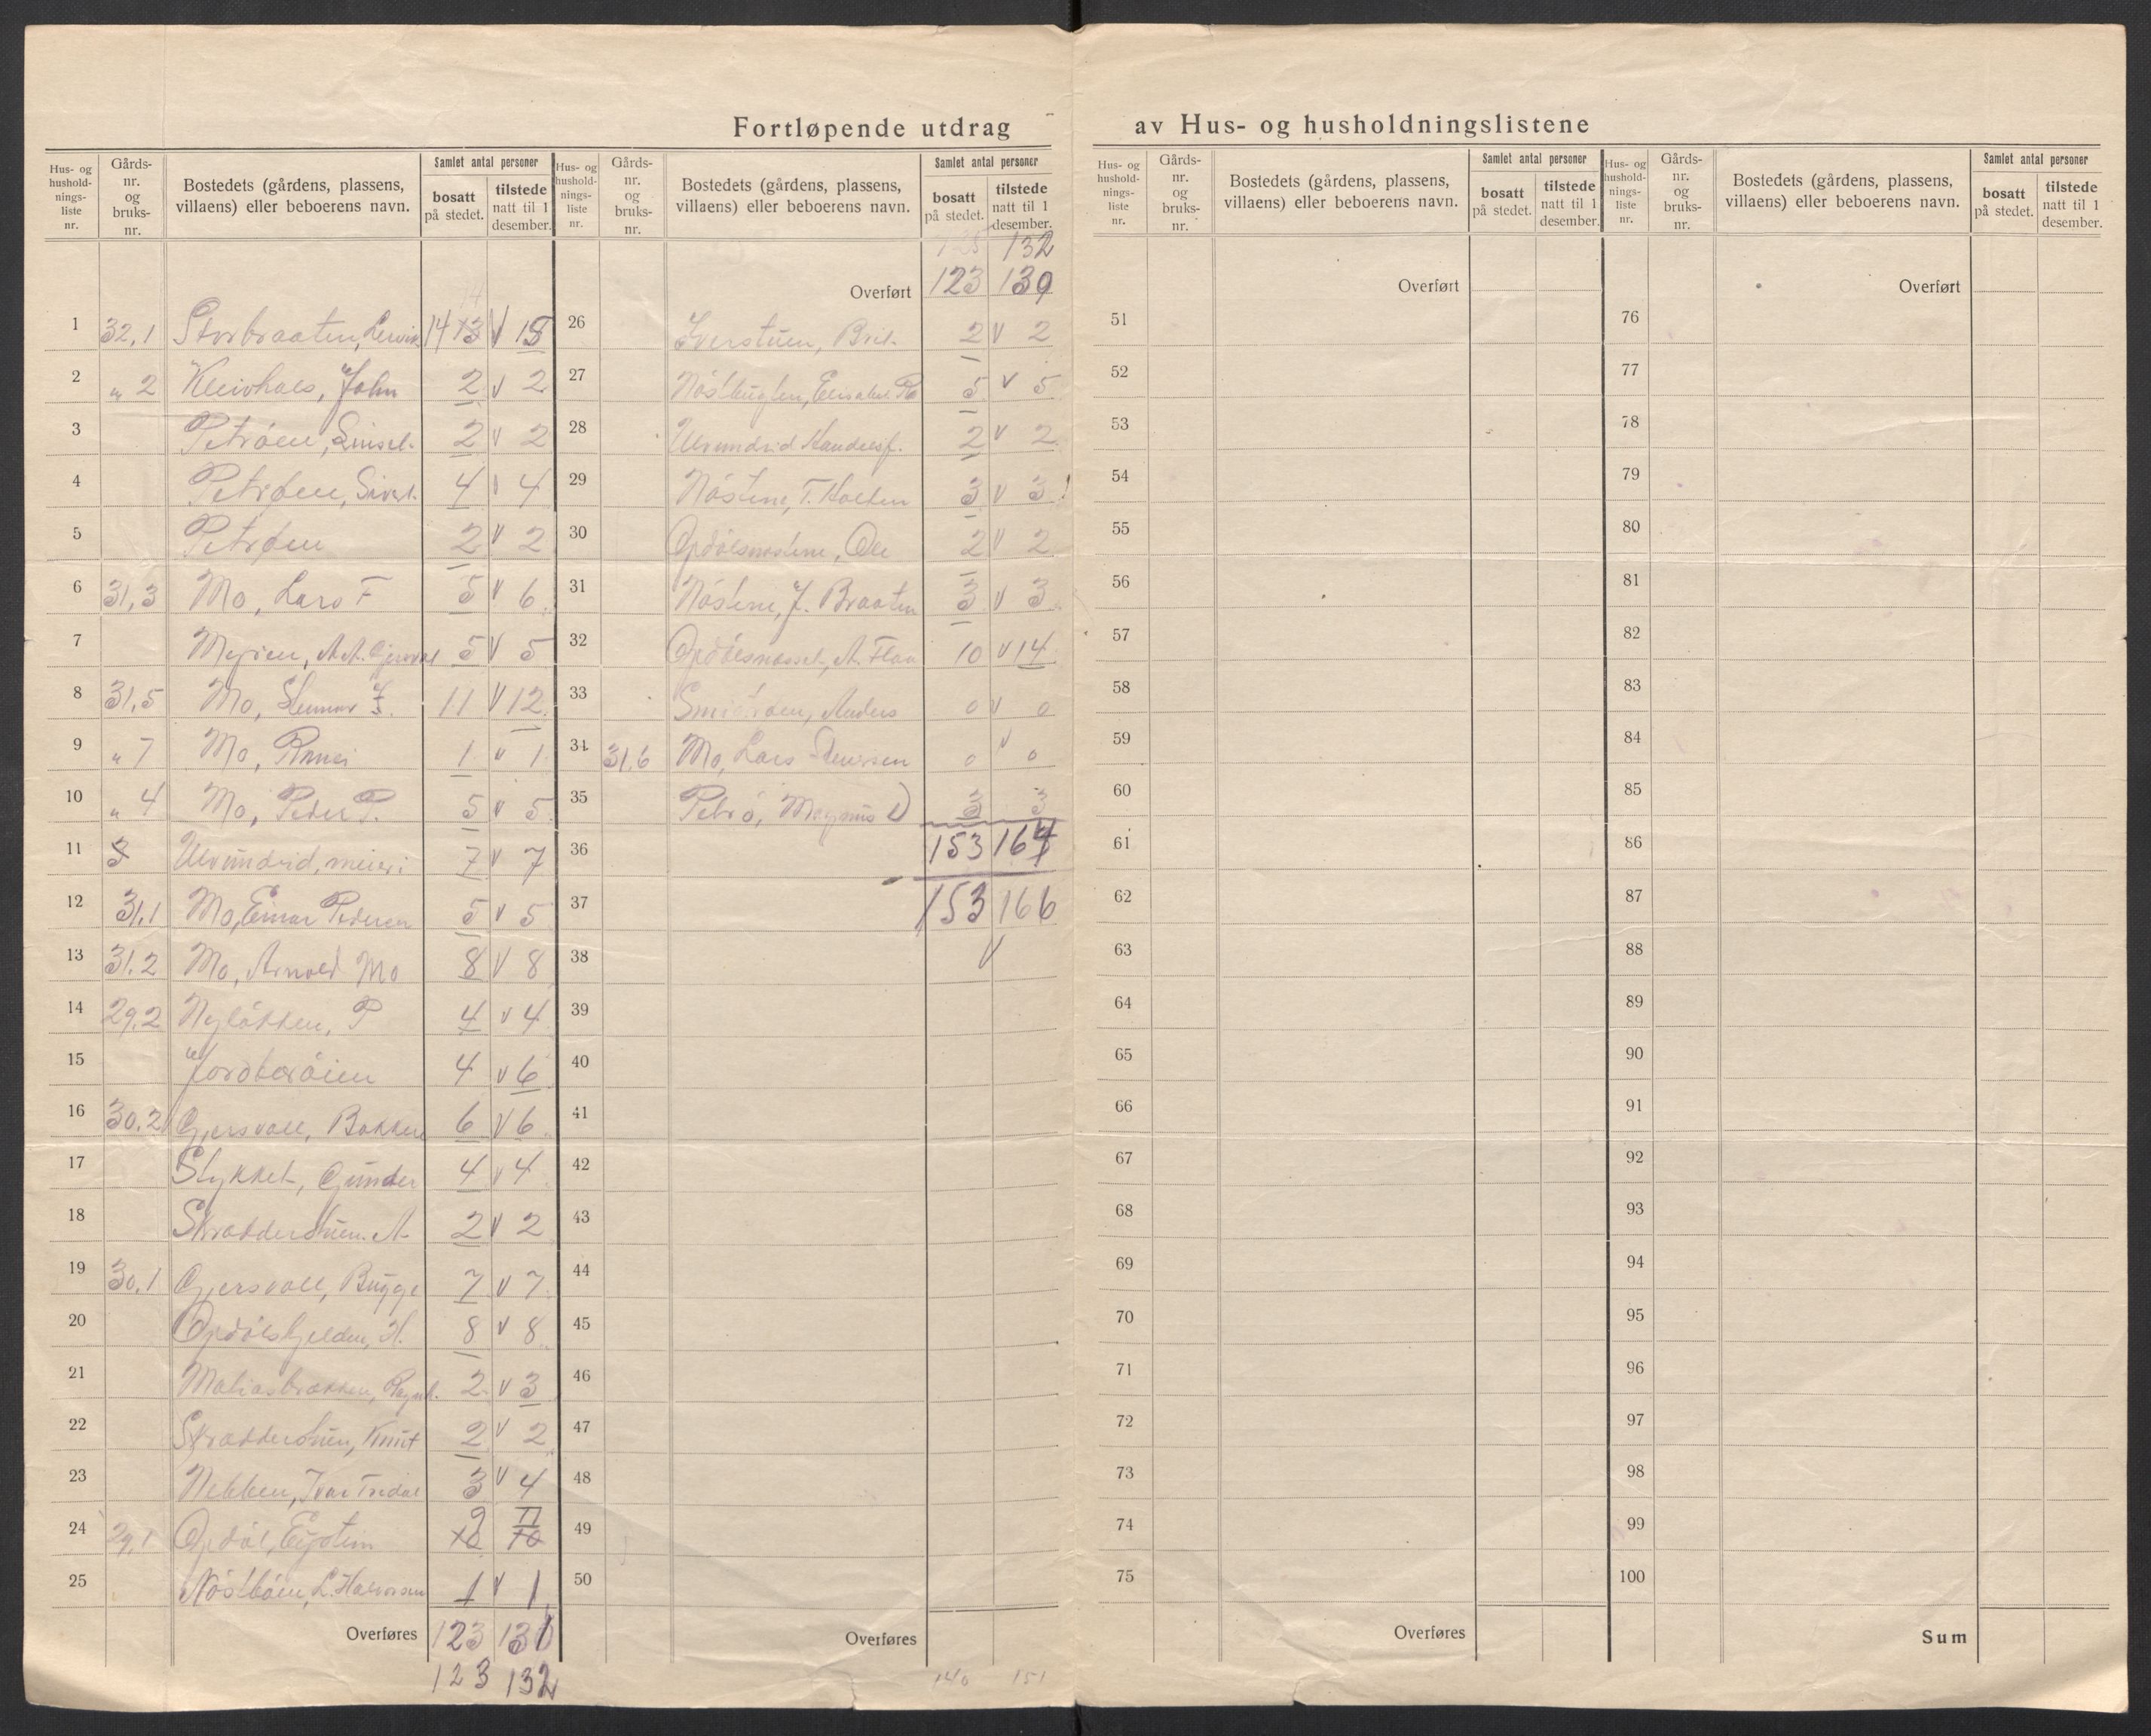 Fortløpende utdrag av Hus- og husholdningslistene
Hus- og hushold- nings- liste nr. | Gårds- nr. og bruks- nr. | Bostedets (gårdens, plassens, villaens) eller beboerens navn. | Samlet antal personer | bosatt på stedet. | tilstede natt til 1 desember.
1 32,1 Storbraaten, 14 13 v 15
2 " 2 Kleivhals, John 2 v 2
3 Petrøen, 2 v 2
4 Petrøen, Sivert. 4 v 4
5 Petrøen 2 v 2
6 31,3 Mo, Lars F 5 v 6
7 5 v 5
8 31,5 Mo, 11 v 12
9 " 7 Mo, 1 v 1
10 " 4 Mo, Peder P. 5 v 5
11 Ulvundeid, meieri 7 v 7
12 31,1 Mo, Einar Pedersen 5 v 5
13 31,2 Mo, Arnold Mo 8 v 8
14 29,2 Nyløkken, P 4 v 4
15 4 v 6
16 30,2 Gjersvoll, Bakken 6 v 6
17 Stykket, Gunder 4 v 4
18 Skrædderstuen. A 2 v 2
19 30,1 Gjersvoll, Bugge 7 v 7
20 H. 8 v 8
21 Matiasbrækken, 2 v 3
22 Skrædderstuen, Knut 2 v 2
23 Nebben, Ivar Tredal 3 v 4
24 29,1 Opdøl, Eystein 9 11 10
25 L. Halvorsen 1 v 1
Overføres 123 131
123 132
Hus- og hushold- nings- liste nr. | Gårds- nr. og bruks- nr. | Bostedets (gårdens, plassens, villaens) eller beboerens navn. | Samlet antal personer | bosatt på stedet. | tilstede natt til 1 desember.
132
Overført 123 130
26 Iverstuen, Brit. 2 v 2
27 5 v 5
28 Ulvundeid Handelsf. 2 v 2
29 Nøstene, T. Holten 3 v 3
30 Opdølsnøstene, Ole 2 v 2
31 Nøstene, J. Braaten 3 v 3
32 10 v 14
33 Anders 0 v 0
34 31,6 Mo, Lars 0 v 0
35 Petrø, Magnus 3 3
36 153 164
37 153 166
38 v
39
40
41
42
43
44
45
46
47
48
49
50
Overføres
140 151
Hus- og hushold- nings- liste nr. | Gårds- nr. og bruks- nr. | Bostedets (gårdens, plassens, villaens) eller beboerens navn. | Samlet antal personer | bosatt på stedet. | tilstede natt til 1 desember.
Overført
51
52
53
54
55
56
57
58
59
60
61
62
63
64
65
66
67
68
69
70
71
72
73
74
75
Overføres
Hus- og hushold- nings- liste nr. | Gårds- nr. og bruks- nr. | Bostedets (gårdens, plassens, villaens) eller beboerens navn. | Samlet antal personer | bosatt på stedet. | tilstede natt til 1 desember.
Overført
76
77
78
79
80
81
82
83
84
85
86
87
88
89
90
91
92
93
94
95
96
97
98
99
100
Sum